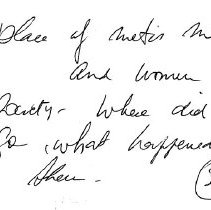 Place of metis m
and women
Society - where did
Go, what happened
them -